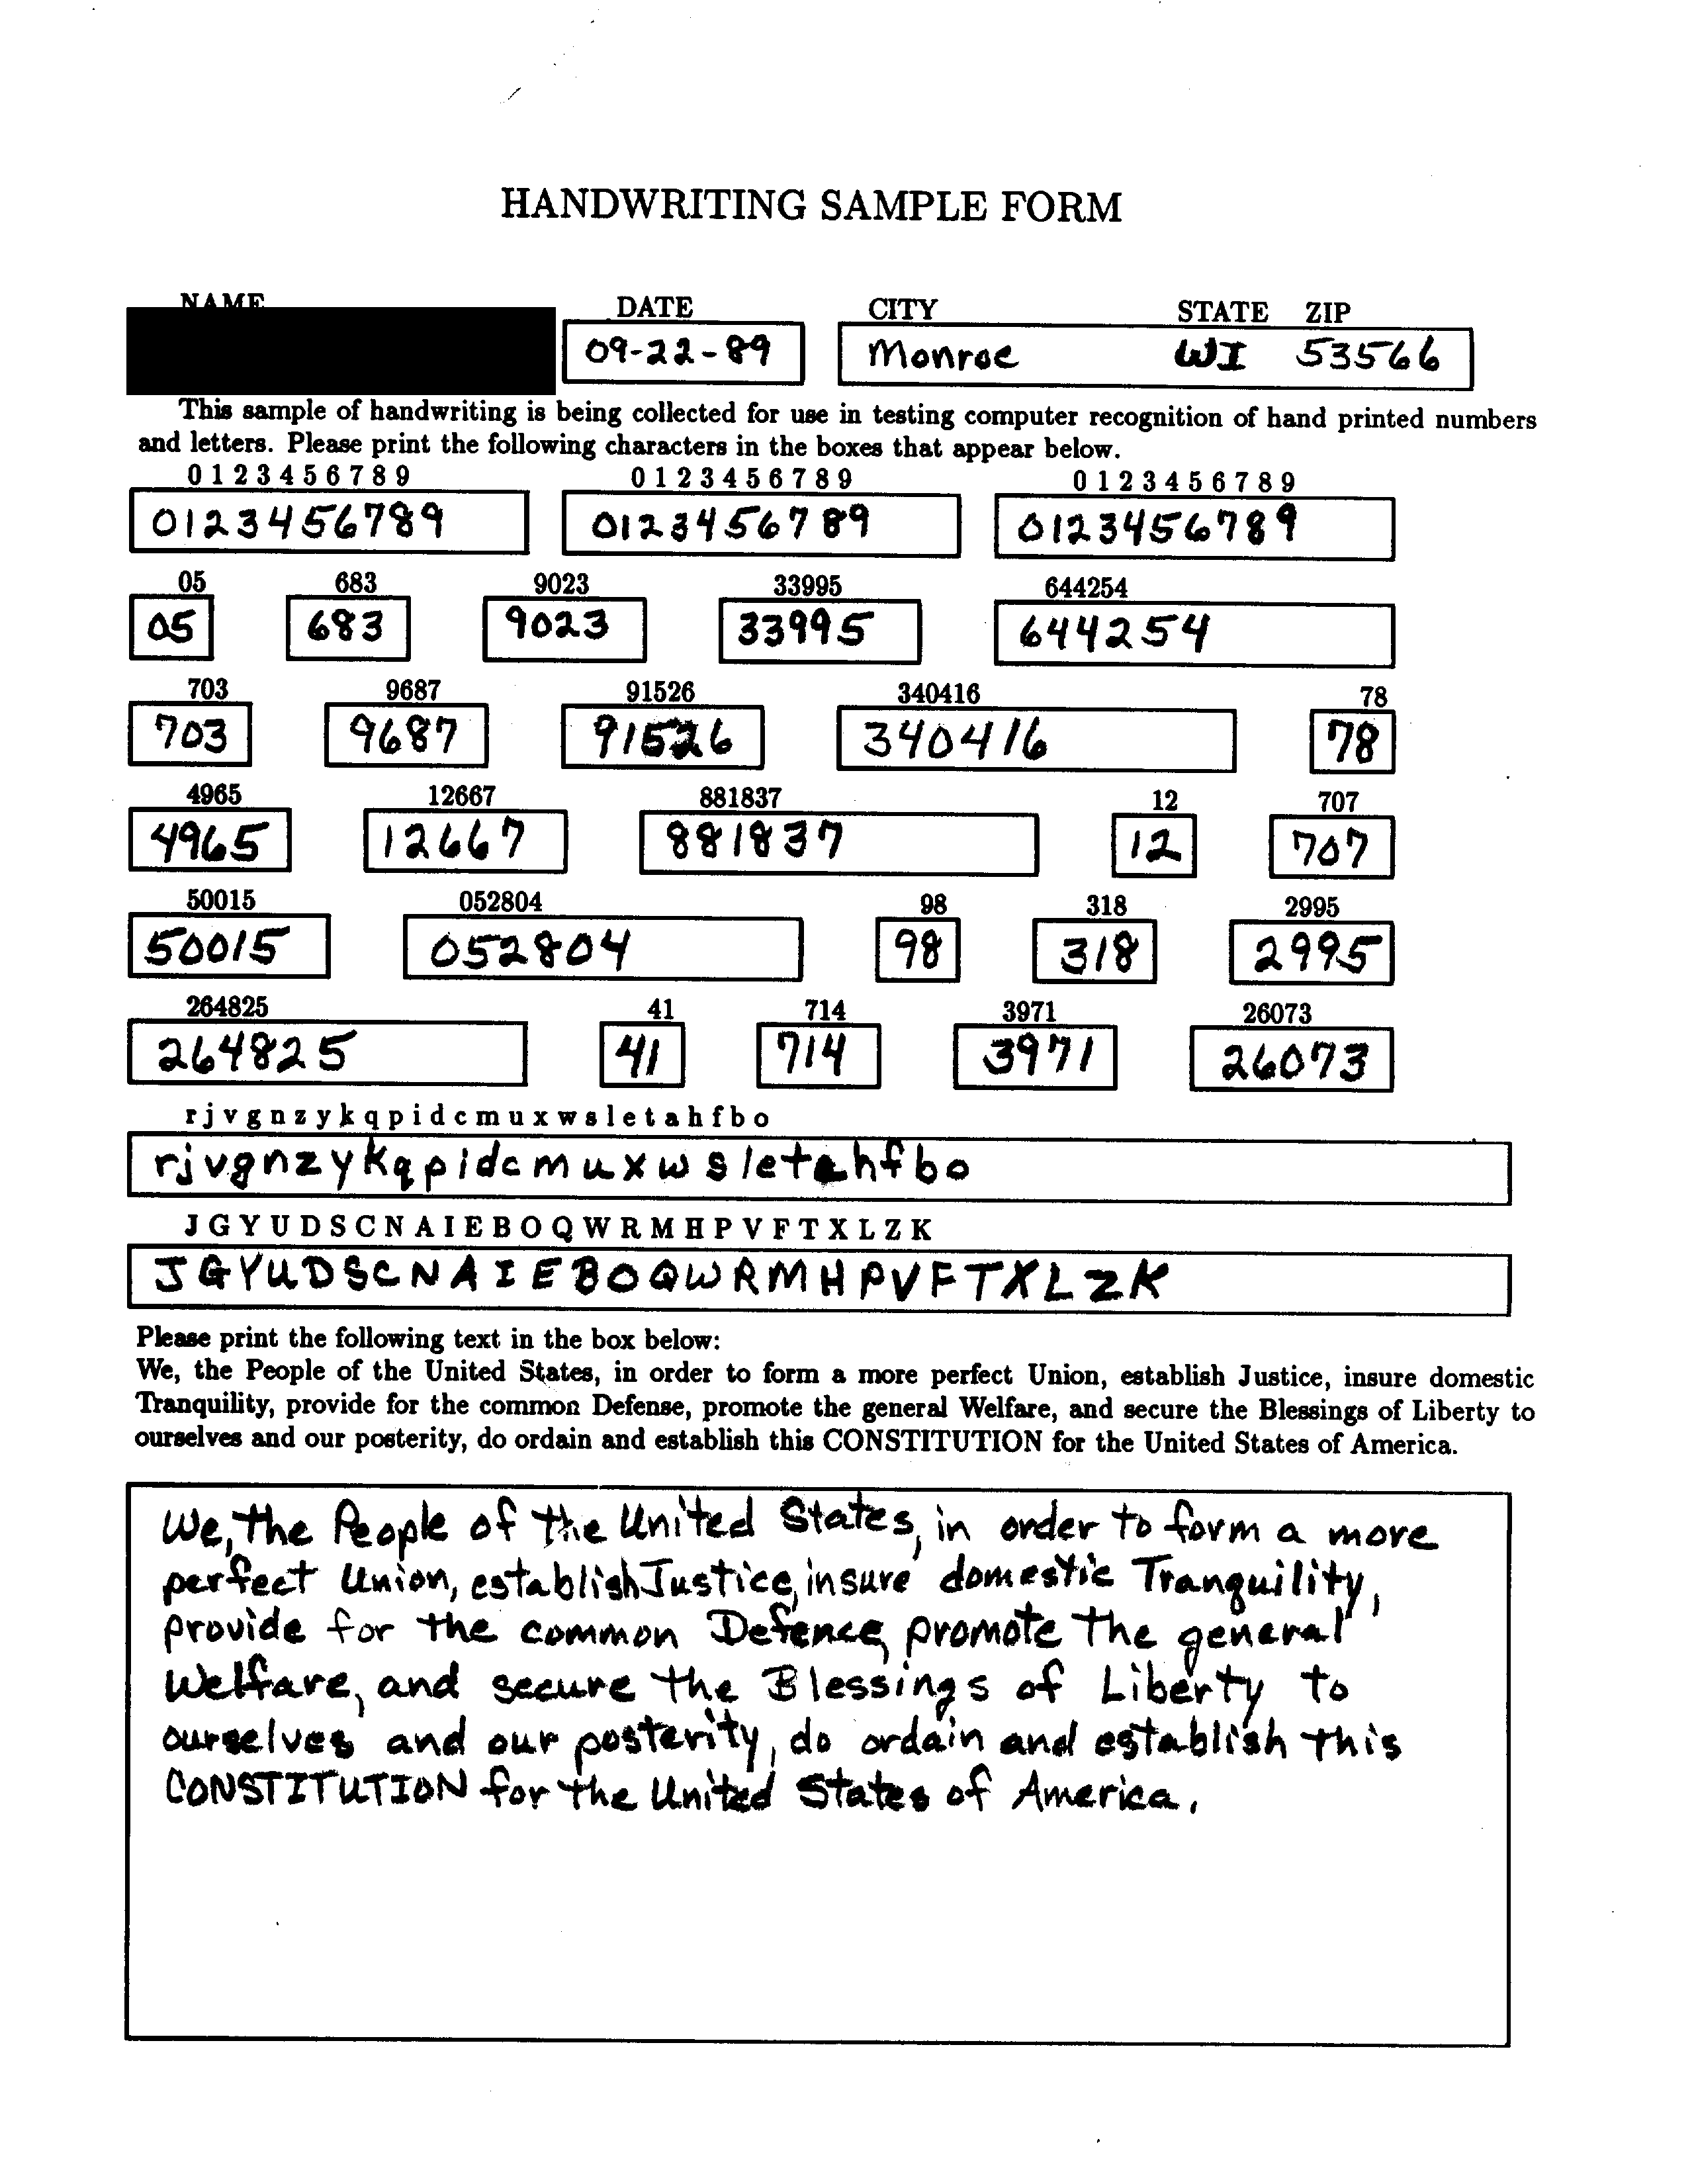 HANDWRITING SAMPLE FORM
NAME DATE CITY STATE ZIP
09-22-89 Monroe WI 53566
This sample of handwriting is being collected for use in testing computer recognition of hand printed numbers
and letters. Please print the following characters in the boxes that appear below.
0 1 2 3 4 5 6 7 8 9 0 1 2 3 4 5 6 7 8 9 0 1 2 3 4 5 6 7 8 9
0123456789 0123456789 0123456789
05 683 9023 33995 644254
05 683 9023 33995 644254
703 9687 91526 340416 78
703 9687 91526 340416 78
4965 12667 881837 12 707
4965 12667 881837 12 707
50015 052804 98 318 2995
50015 052804 98 318 2995
264825 41 714 3971 26073
264825 41 714 3971 26073
r j v g n z y k q p i d c m u x w s l e t a h f b o
rjvgnzykqpidcmuxwsletahfbo
J G Y U D S C N A I E B O Q W R M H P V F T X L Z K
JGYUDSCNAIEBOQWRMHPVFTXLZK
Please print the following text in the box below:
We, the People of the United States, in order to form a more perfect Union, establish Justice, insure domestic
Tranquility, provide for the common Defense, promote the general Welfare, and secure the Blessings of Liberty to
ourselves and our posterity, do ordain and establish this CONSTITUTION for the United States of America.
We, the People of the United States, in order to form a more
perfect Union, establish Justice, insure domestic Tranquility,
provide for the common Defence, promote the general
Welfare, and secure the Blessings of Liberty to
ourselves and our posterity, do ordain and establish this
CONSTITUTION for the United States of America.